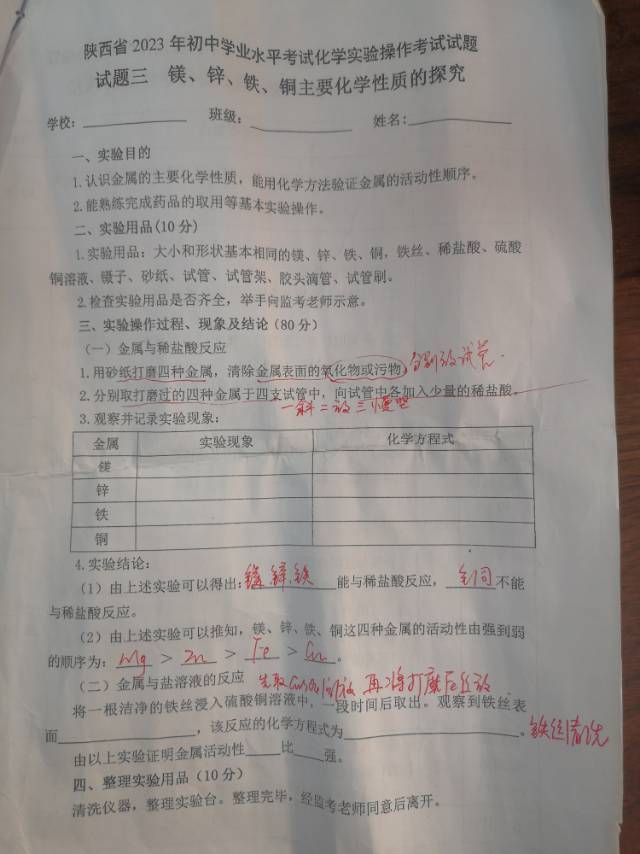 陕西省2023年初中学业水平考试化学实验操作考试试题
试题三 镁、锌、铁、铜主要化学性质的探究
学校：____________ 班级：____________ 姓名：____________
一、实验目的
1.认识金属的主要化学性质，能用化学方法验证金属的活动性顺序。
2.能熟练完成药品的取用等基本实验操作。
二、实验用品(10分)
1.实验用品：大小和形状基本相同的镁、锌、铁、铜，铁丝、稀盐酸、硫酸
铜溶液、镊子、砂纸、试管、试管架、胶头滴管、试管刷。
2.检查实验用品是否齐全，举手向监考老师示意。
三、实验操作过程、现象及结论（80分）
（一）金属与稀盐酸反应
1.用砂纸打磨四种金属，清除金属表面的氧化物或污物，分别放试管.
2.分别取打磨过的四种金属于四支试管中，向试管中各加入少量的稀盐酸。
一斜二放三慢竖
3.观察并记录实验现象：
金属 实验现象 化学方程式
镁
锌
铁
铜
4.实验结论：
（1）由上述实验可以得出：镁 锌 铁 能与稀盐酸反应，铜 不能
与稀盐酸反应。
（2）由上述实验可以推知，镁、锌、铁、铜这四种金属的活动性由强到弱
的顺序为：Mg > Zn > Fe > Cu。
（二）金属与盐溶液的反应 先取 再将打磨后
将一根洁净的铁丝浸入硫酸铜溶液中，一段时间后取出。观察到铁丝表
面____________，该反应的化学方程式为____________。铁丝清洗
由以上实验证明金属活动性____比____强。
四、整理实验用品（10分）
清洗仪器，整理实验台。整理完毕，经监考老师同意后离开。